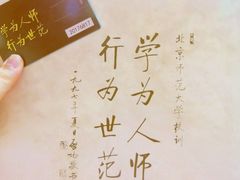 学为人师
行为世范
2016817
北京师范大学校训
学为人师
行为世范
一九九七年夏日启功敬书